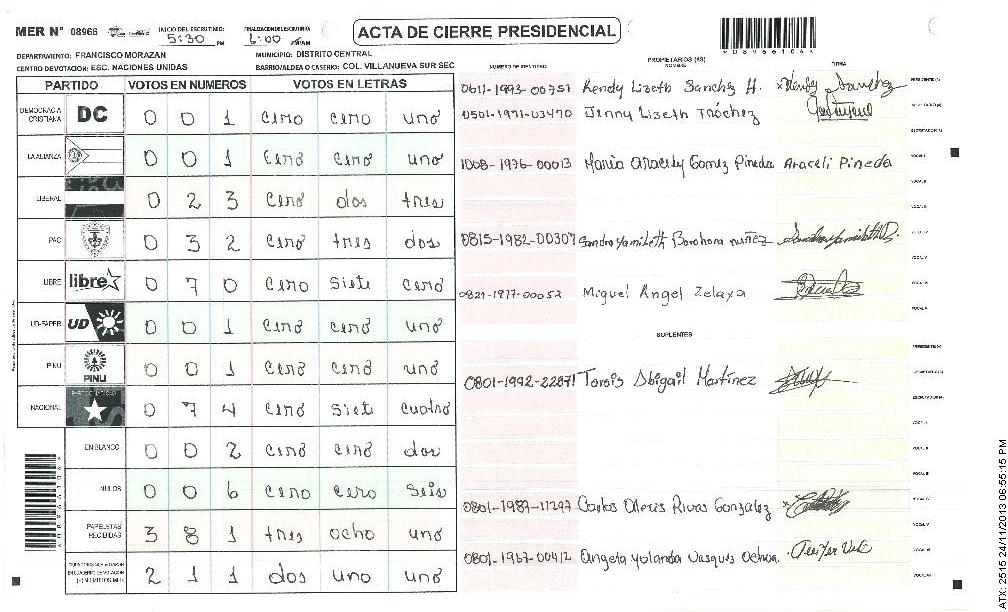 MER N° 08966
INICIO DEL ESCRUTINIO: 5:30 PM
FINALIZACION DEL ESCRUTINIO: 6:00
ACTA DE CIERRE PRESIDENCIAL
DEPARTAMENTO: FRANCISCO MORAZAN
MUNICIPIO: DISTRITO CENTRAL
CENTRO DE VOTACION: ESC. NACIONES UNIDAS
BARRIO/ALDEA O CASERIO: COL. VILLANUEVA SUR SEC
PARTIDO VOTOS EN NUMEROS VOTOS EN LETRAS
DEMOCRACIA CRISTIANA DC 0 0 1 cero cero uno
LA ALIANZA 0 0 1 cero cero uno
LIBERAL 0 2 3 cero dos tres
PAC 0 3 2 cero tres dos
LIBRE libre 0 7 0 cero siete cero
UD-FAPER UD 0 0 1 cero cero uno
PINU PINU 0 0 1 cero cero uno
NACIONAL 0 7 4 cero siete cuatro
EN BLANCO 0 0 2 cero cero dos
NULOS 0 0 6 cero cero seis
PAPELETAS RECIBIDAS 3 8 1 tres ocho uno
2 1 1 dos uno uno
NUMERO DE IDENTIDAD PROPIETARIOS (AS) NOMBRE FIRMA
0611-1993-00751 Kendy Lizeth Sanchez H. Kendy Sanchez
0501-1971-03470 Jenny Lizeth Tróchez
1008-1976-00013 Maria Aracely Gomez Pineda Araceli Pineda
0815-1982-00307 Sandra Yamileth Barahona nuñez
0821-1977-00052 Miguel Angel Zelaya
SUPLENTES
0801-1992-22871 Abigail Martínez
0801-1987-11297 Carlos Rivas Gonzalez
0801-1967-00412 Angela Yolanda Vasques Ochoa.
ATX: 2515 24/11/2013 06:55:15 PM